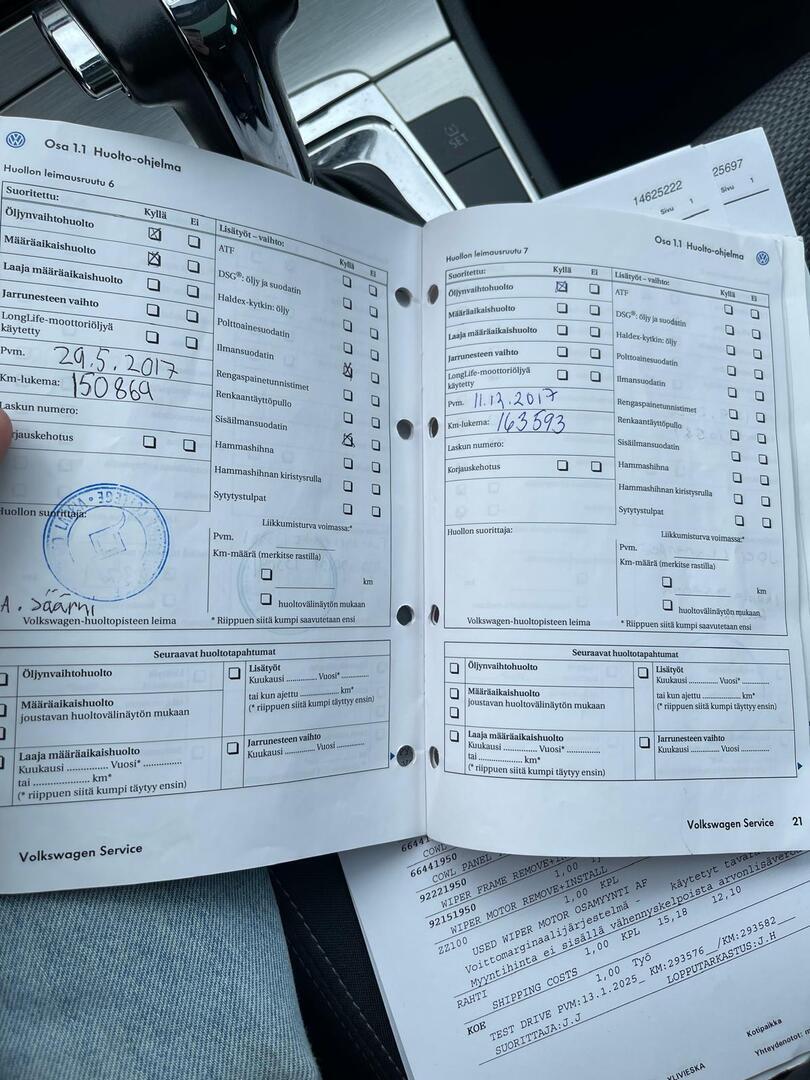 SET
14625222
Sivu 1
25697
Sivu 1
Osa 1.1 Huolto-ohjelma
Huollon leimausruutu 6
Suoritettu:
Kyllä Ei
Öljynvaihtohuolto
Määräaikaishuolto
Laaja määräaikaishuolto
Jarrunesteen vaihto
LongLife-moottoriöljyä
käytetty
Pvm. 29.5.2017
Km-lukema: 150869
Laskun numero:
rjauskehotus
Huollon suorittaja:
A. Säärni
Volkswagen-huoltopisteen leima
Lisätyöt – vaihto:
Kyllä Ei
ATF
DSG®: öljy ja suodatin
Haldex-kytkin: öljy
Polttoainesuodatin
Ilmansuodatin
Rengaspainetunnistimet
Renkaantäyttöpullo
Sisäilmansuodatin
Hammashihna
Hammashihnan kiristysrulla
Sytytystulpat
Liikkumisturva voimassa:*
Pvm.
Km-määrä (merkitse rastilla)
km
huoltovälinäytön mukaan
* Riippuen siitä kumpi saavutetaan ensi
Seuraavat huoltotapahtumat
Öljynvaihtohuolto
Määräaikaishuolto
joustavan huoltovälinäytön mukaan
Laaja määräaikaishuolto
Kuukausi ............. Vuosi* .............
tai .................... km*
(* riippuen siitä kumpi täytyy ensin)
Lisätyöt
Kuukausi ............. Vuosi* .............
tai kun ajettu ................. km*
(* riippuen siitä kumpi täytyy ensin)
Jarrunesteen vaihto
Kuukausi ............. Vuosi .............
Volkswagen Service
Osa 1.1 Huolto-ohjelma
Huollon leimausruutu 7
Suoritettu:
Kyllä Ei
Öljynvaihtohuolto
Määräaikaishuolto
Laaja määräaikaishuolto
Jarrunesteen vaihto
LongLife-moottoriöljyä
käytetty
Pvm. 11.12.2017
Km-lukema: 163593
Laskun numero:
Korjauskehotus
Huollon suorittaja:
Volkswagen-huoltopisteen leima
Lisätyöt – vaihto:
Kyllä Ei
ATF
DSG®: öljy ja suodatin
Haldex-kytkin: öljy
Polttoainesuodatin
Ilmansuodatin
Rengaspainetunnistimet
Renkaantäyttöpullo
Sisäilmansuodatin
Hammashihna
Hammashihnan kiristysrulla
Sytytystulpat
Liikkumisturva voimassa:*
Pvm.
Km-määrä (merkitse rastilla)
km
huoltovälinäytön mukaan
* Riippuen siitä kumpi saavutetaan ensi
Seuraavat huoltotapahtumat
Öljynvaihtohuolto
Määräaikaishuolto
joustavan huoltovälinäytön mukaan
Laaja määräaikaishuolto
Kuukausi ............. Vuosi* .............
tai .................... km*
(* riippuen siitä kumpi täytyy ensin)
Lisätyöt
Kuukausi ............. Vuosi* .............
tai kun ajettu ................. km*
(* riippuen siitä kumpi täytyy ensin)
Jarrunesteen vaihto
Kuukausi ............. Vuosi .............
Volkswagen Service 21
66441950
COWL PANEL
92221950 1,00
WIPER FRAME REMOVE+
92151950 1,00 KPL
WIPER MOTOR REMOVE+INSTALL
ZZ100 1,00 KPL
USED WIPER MOTOR OSAMYYNTI AF
Voittomarginaalijärjestelmä - käytetyt
Myyntihinta ei sisällä vähennyskelpoista arvonlisävero
RAHTI 1,00 KPL 15,18 12,10
SHIPPING COSTS
KOE 1,00 Työ
TEST DRIVE PVM:13.1.2025_ KM:293576__/KM:293582__
SUORITTAJA:J.J LOPPUTARKASTUS:J.H
Kotipaikka
YLIVIESKA
Yhteydenotot: